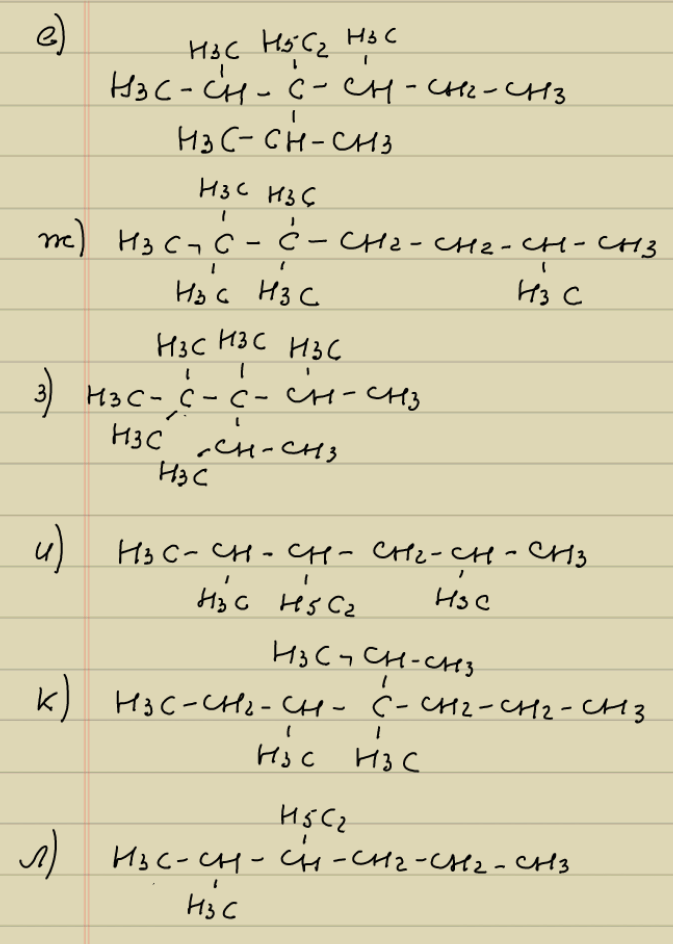 е)
H3C H5C2 H3C
H3C - CH - C - CH - CH2 - CH3
H3C - CH - CH3
ж)
H3C H3C
H3C - C - C - CH2 - CH2 - CH - CH3
H3C H3C H3C
з)
H3C H3C H3C
H3C - C - C - CH - CH3
H3C CH - CH3
H3C
и)
H3C - CH - CH - CH2 - CH - CH3
H3C H5C2 H3C
к)
H3C - CH - CH3
H3C - CH2 - CH - C - CH2 - CH2 - CH3
H3C H3C
л)
H5C2
H3C - CH - CH - CH2 - CH2 - CH3
H3C